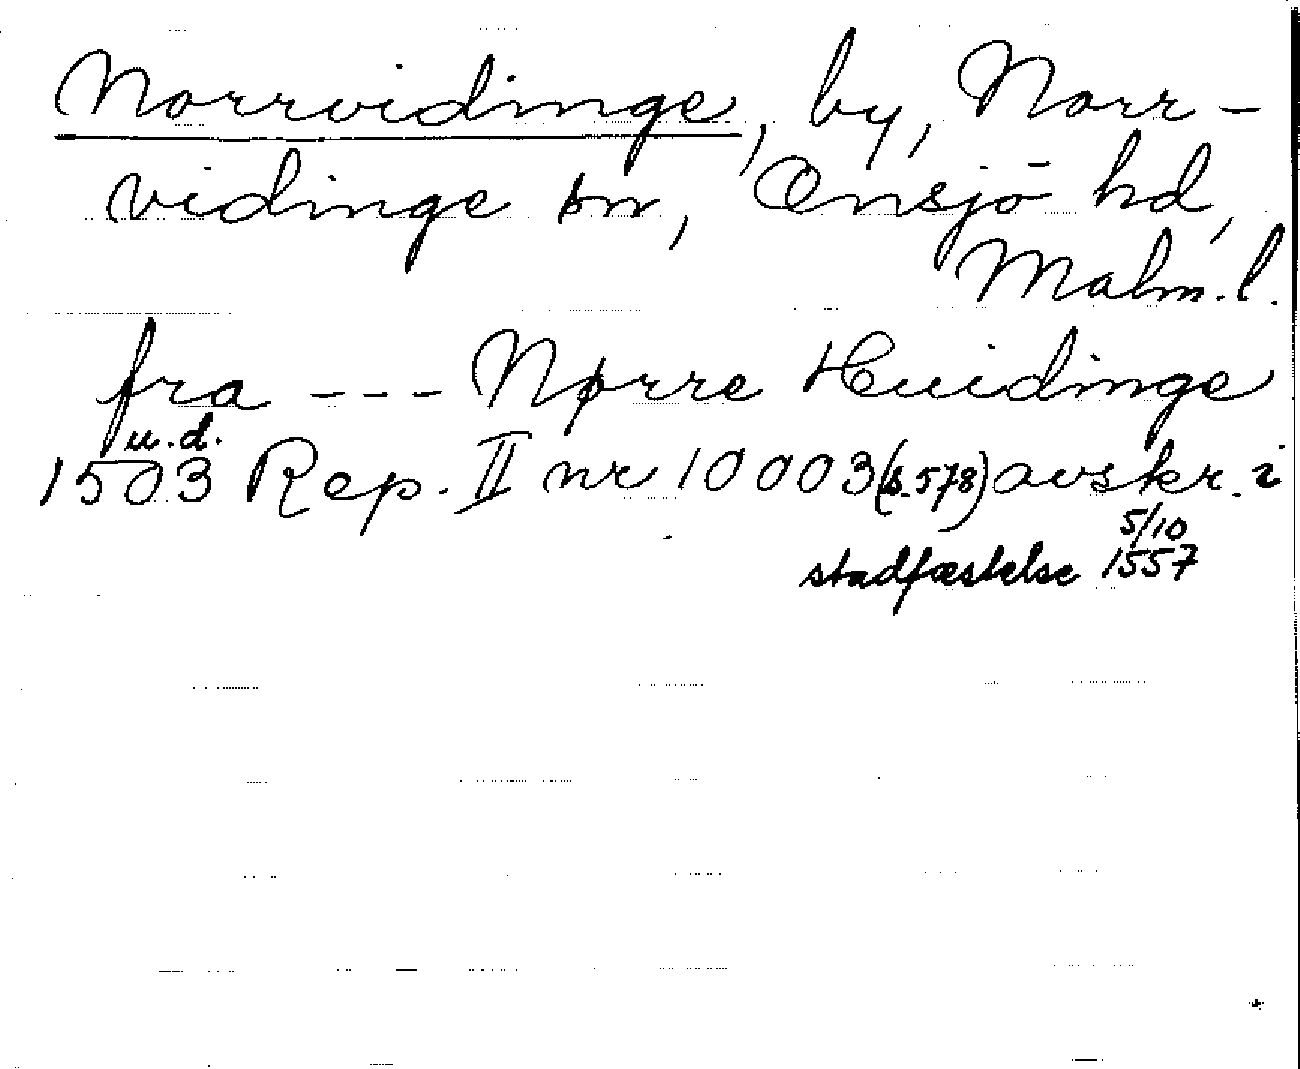 Norrvidinge, by, Norr-
vidinge sn, Onsjö hd,
Malm.l.
fra --- Nørre Huidinge
u.d.
1503 Rep. II nr 10003 (s. 578) avskr. i
stadfæstelse 5/10 1557